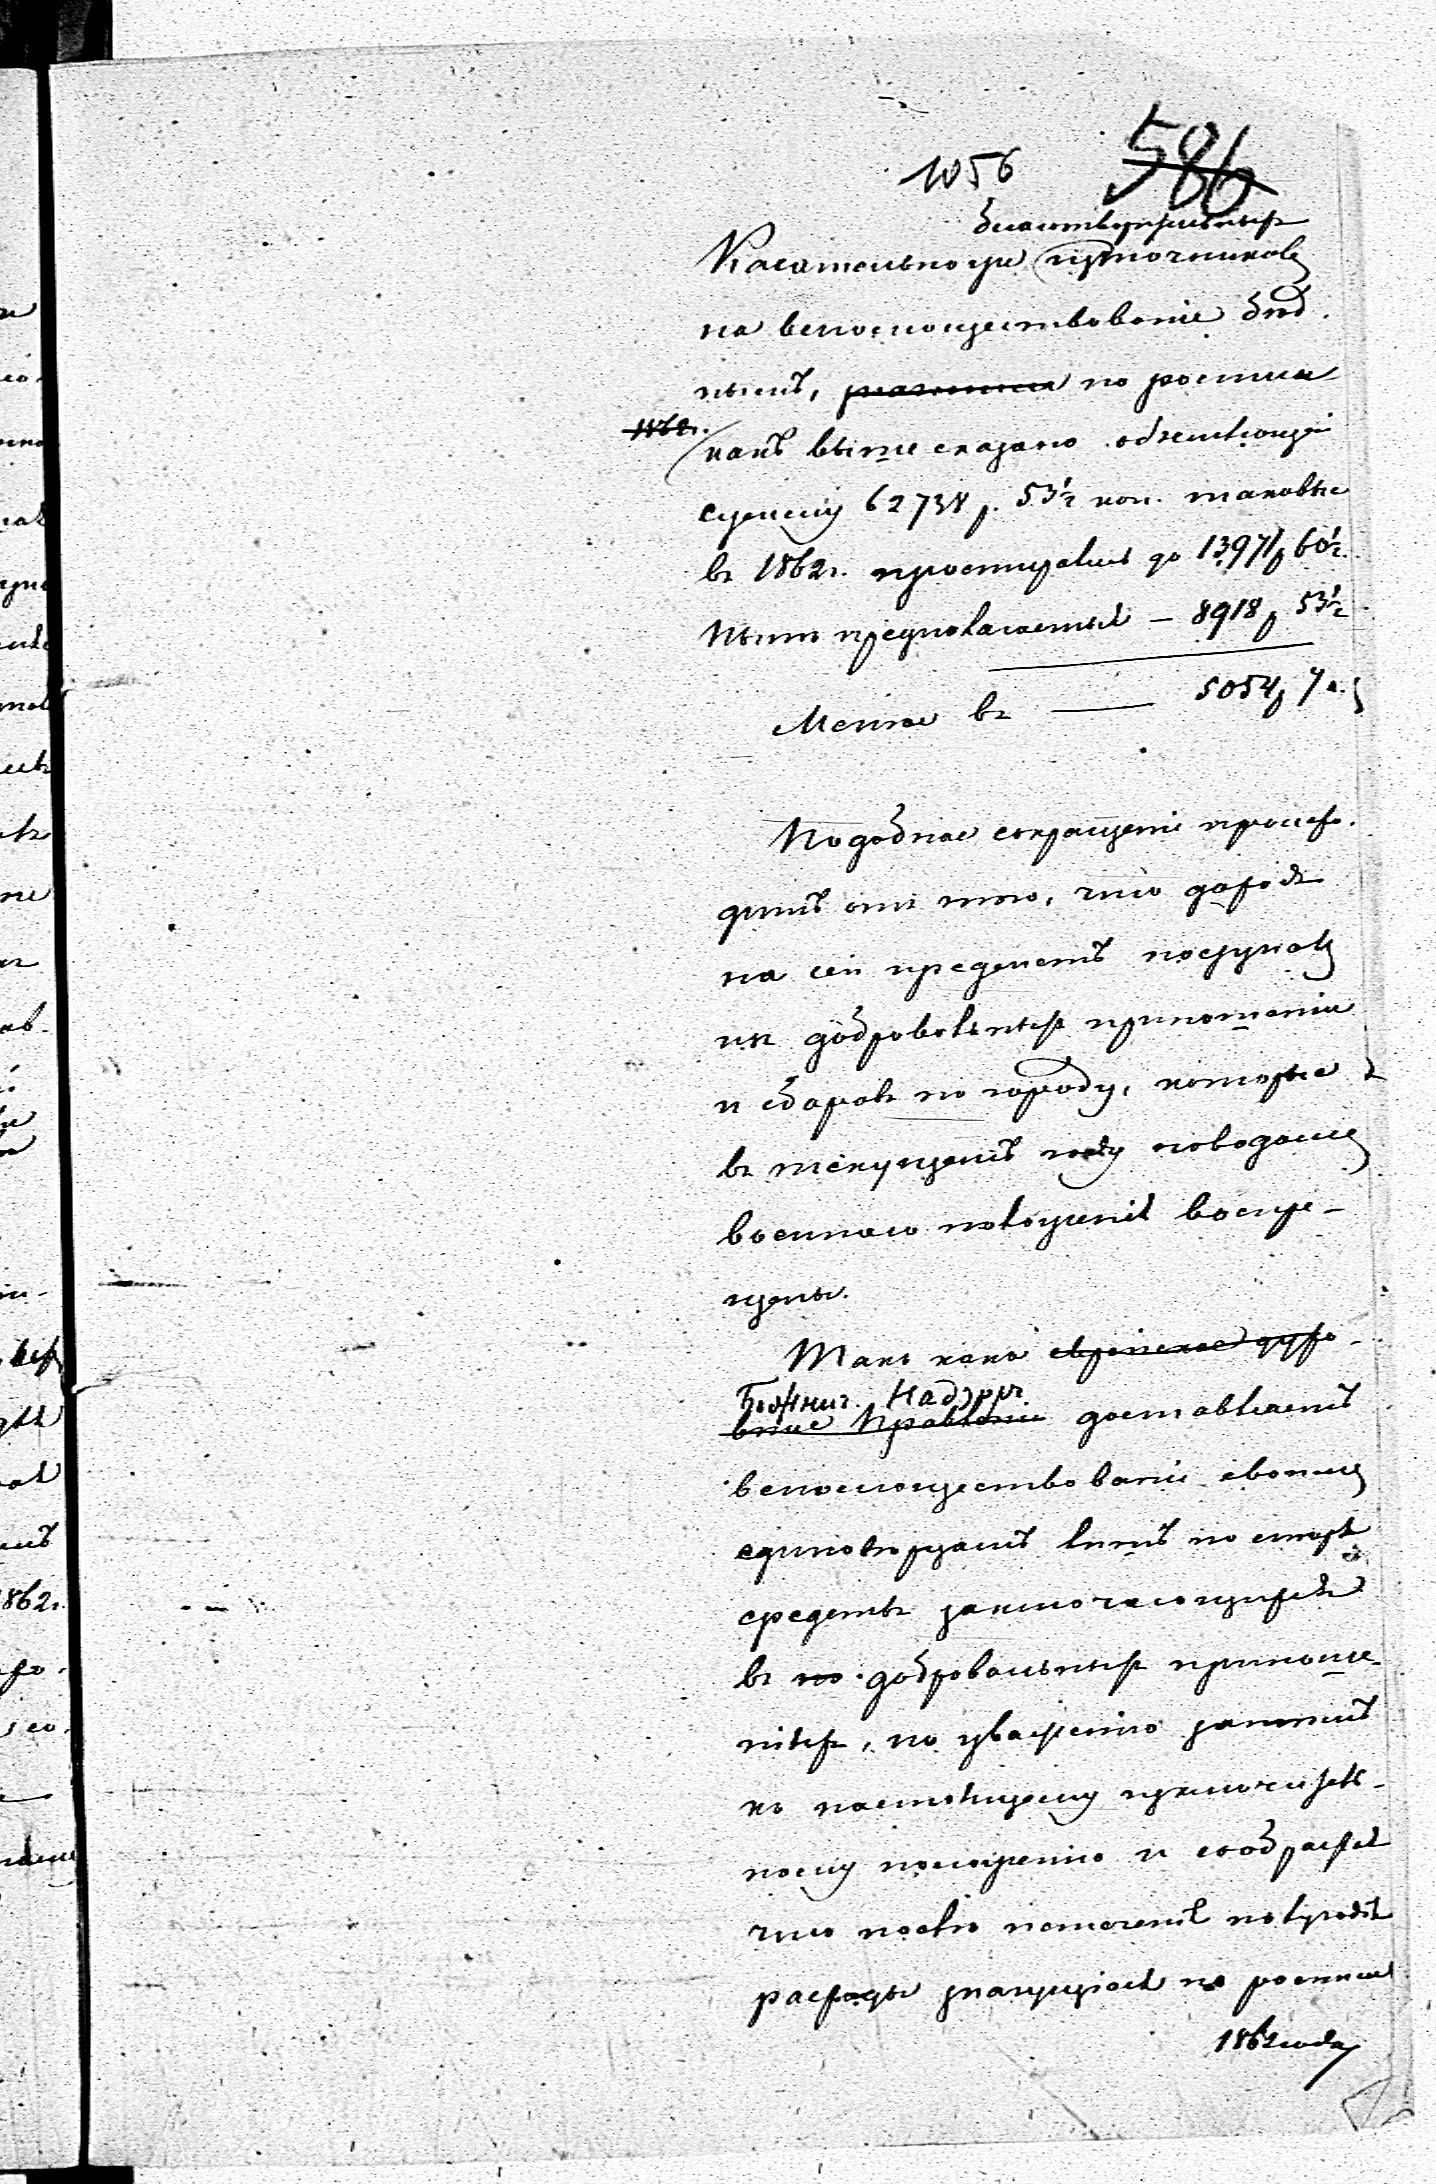 1056 586
благотворительныхъ
Касательно же источниковъ
на вспомоществованіе бѣд-
нымъ, по росписи
1862г.
какъ выше сказано обнимающей
сумму 62738 р. 53½ коп. таковые
въ 1862г. простирались до 13971р 60½
Нынѣ предполагаемыя — 8918 р 53½
Менѣе въ — 5054р 7к.
Подобное сокращеніе происхо-
дитъ отъ того, что доходъ
на сей предметъ
изъ добровольныхъ приношеній
и сборовъ по городу, которые
въ текущемъ году поводомъ
военнаго положенія воспре-
щены.
Такъ какъ еврейское духо-
Божнич. Надзоръ
вное Правленіе доставляетъ
вспомоществованіе своимъ
единовѣрцамъ лишь по мѣрѣ
средствъ заключающихся
въ по добровольныхъ приноше-
ніяхъ, по уваженію занятій
къ настоящему исключитель-
ному положенію и соображая
что
расходы значущіеся по росписи
1862 года